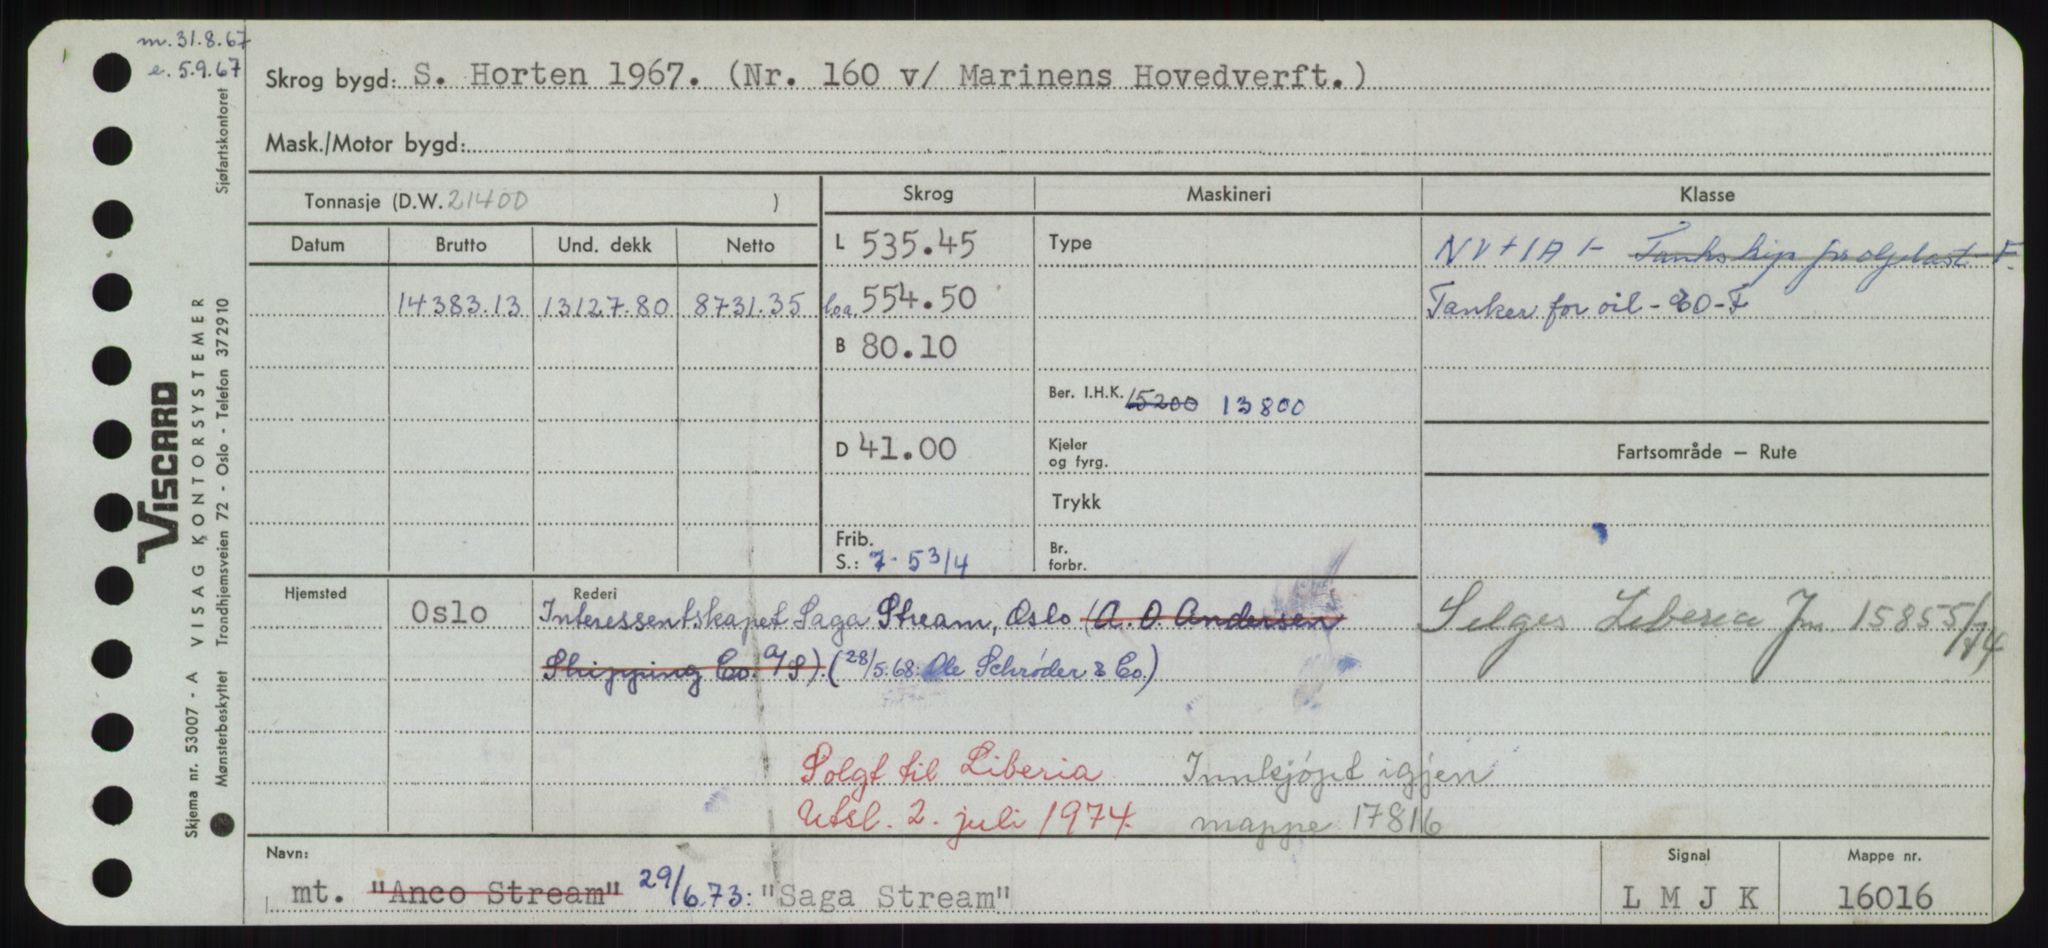 m. 31.8.67
e. 5.9.67
Skrog bygd: S. Horten 1967. (Nr. 160 v/ Marinens Hovedverft.)
Mask./Motor bygd:
Tonnasje (D.W. 21400 )
Skrog Maskineri Klasse
Datum Brutto Und. dekk Netto
L 535.45 Type NV+1A1- Tankskip for oljelast F.
14383.13 13127.80 8731.35 loa 554.50 Tanker for oil - EO - F
B 80.10
Ber. I.H.K. 15200 13800
D 41.00 Kjeler og fyrg. Fartsområde – Rute
Trykk
Frib. S.: 7 - 5 3/4 Br. forbr.
Hjemsted Rederi
Oslo Interessentskapet Saga Stream, Oslo (A. O Andersen
Shipping Co. A/S). (28/5.68: Ole Schrøder & Co.)
Selges Liberia Jnr. 15855/74
Solgt til Liberia Innkjöpt igjen
Utsl. 2. juli 1974. mappe 17816
Navn: Signal Mappe nr.
mt. "Anco Stream" 29/6.73: "Saga Stream" L M J K 16016
Sjøfartskontoret
VISCARD
VISAG KONTORSYSTEMER
Trondhjemsveien 72 - Oslo - Telefon 372910
Skjema nr. 53007 - A
Mønsterbeskyttet